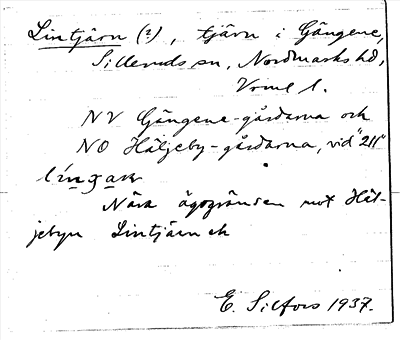 Lintjärn (?), tjärn i Gängene,
Silleruds sn, Nordmarks hd,
Vrml l.
NV Gängene-gårdarna och
NO Häljeby-gårdarna, vid "211"
Nära ägogränsen mot Häl-
jebyn Lintjärn
E. Silfors 1937.